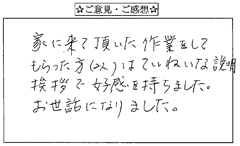 ☆ご意見・ご感想☆
家に来て頂いた作業をして
もらった方(2人)はていねいな説明
挨拶で好感を持ちました。
お世話になりました。